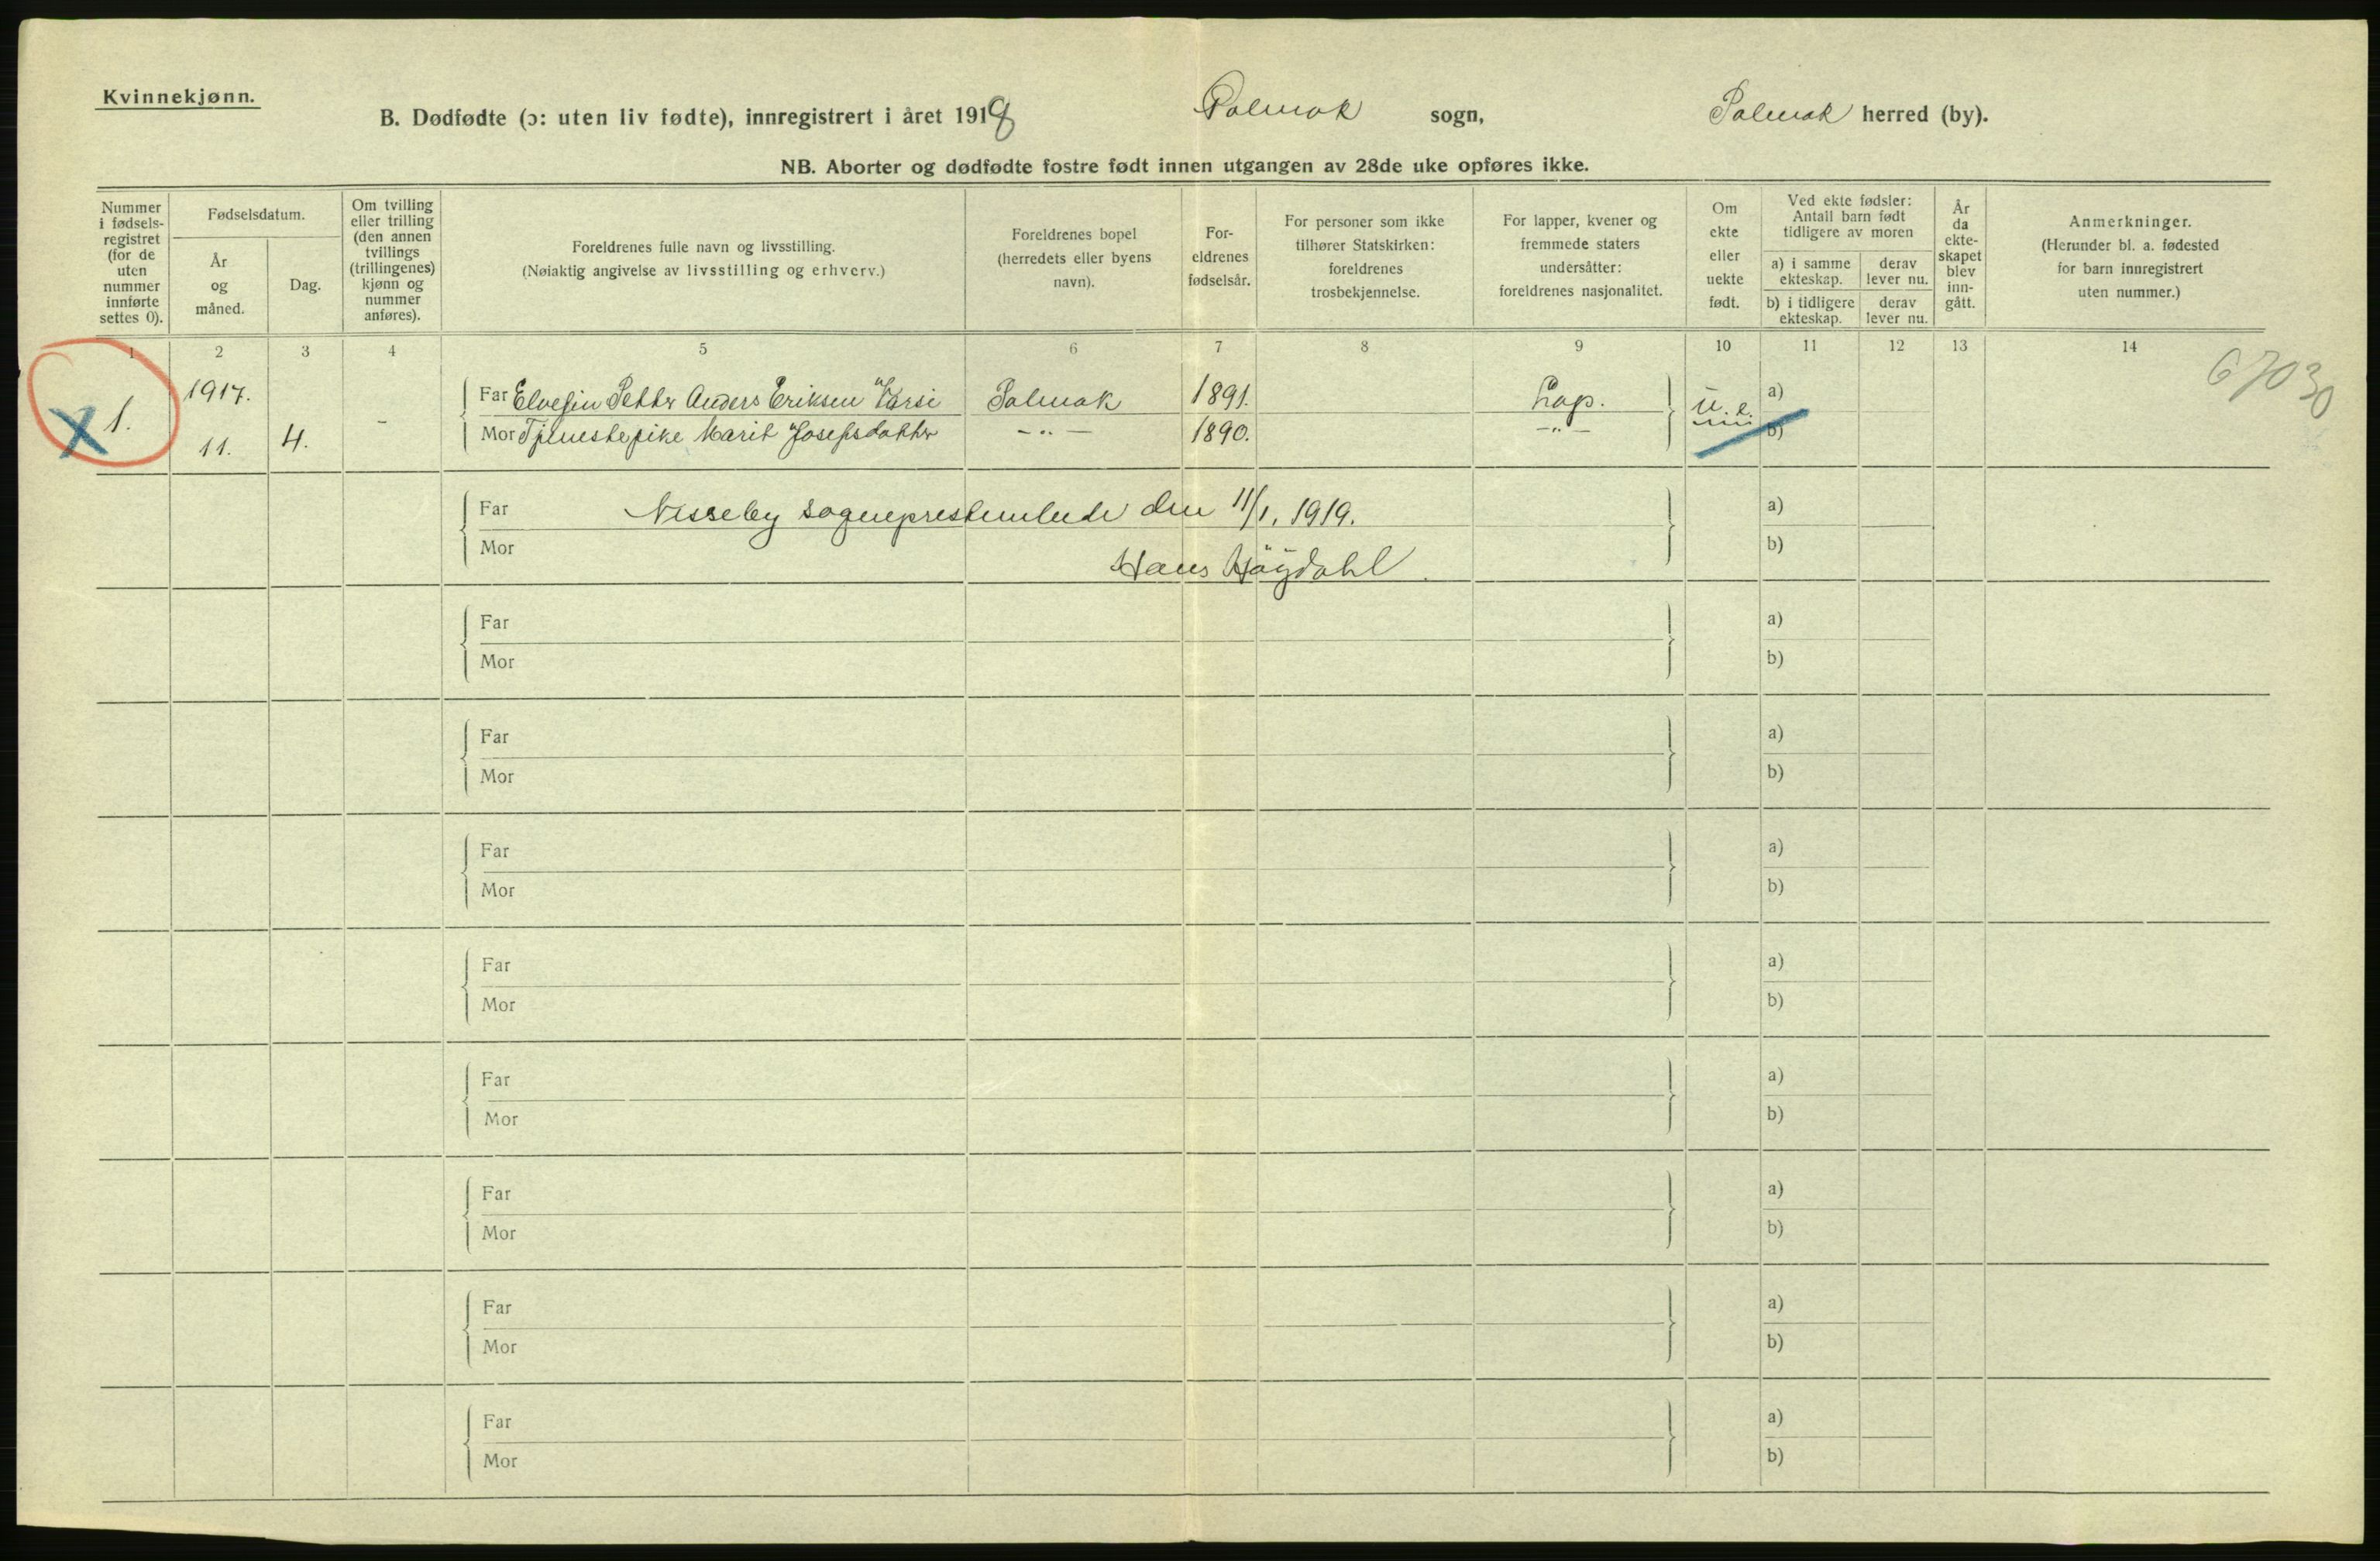 Kvinnekjønn.
B. Dødfødte (ɔ: uten liv fødte), innregistrert i året 1918 Polmak sogn, Polmak herred (by).
NB. Aborter og dødfødte fostre født innen utgangen av 28de uke opføres ikke.
Nummer i fødsels-registret (for de uten nummer innførte settes 0).
Fødselsdatum.
År og måned.
Dag.
Om tvilling eller trilling (den annen tvillings (trillingenes) kjønn og nummer anføres).
Foreldrenes fulle navn og livsstilling.
(Nøiaktig angivelse av livsstilling og erhverv.)
Foreldrenes bopel (herredets eller byens navn).
For-eldrenes fødselsår.
For personer som ikke tilhører Statskirken: foreldrenes trosbekjennelse.
For lapper, kvener og fremmede staters undersåtter: foreldrenes nasjonalitet.
Om ekte eller uekte født.
Ved ekte fødsler: Antall barn født tidligere av moren
a) i samme ekteskap.
derav lever nu.
b) i tidligere ekteskap.
derav lever nu.
År da ekte-skapet blev inn-gått.
Anmerkninger.
(Herunder bl. a. fødested for barn innregistrert uten nummer.)
1 2 3 4 5 6 7 8 9 10 11 12 13 14
67030
X 1. 1917. 11. 4. -
Far Elvefin Petter Anders Eriksen Varsi Polmak 1891. Lap. u. e. a)
Mor Tjenestepike Marit Josefsdatter -„- 1890. -„- b)
Far Nesseby sogneprestembede den 11/1. 1919. a)
Mor Hans Høgdahl. b)
Far a)
Mor b)
Far a)
Mor b)
Far a)
Mor b)
Far a)
Mor b)
Far a)
Mor b)
Far a)
Mor b)
Far a)
Mor b)
Far a)
Mor b)